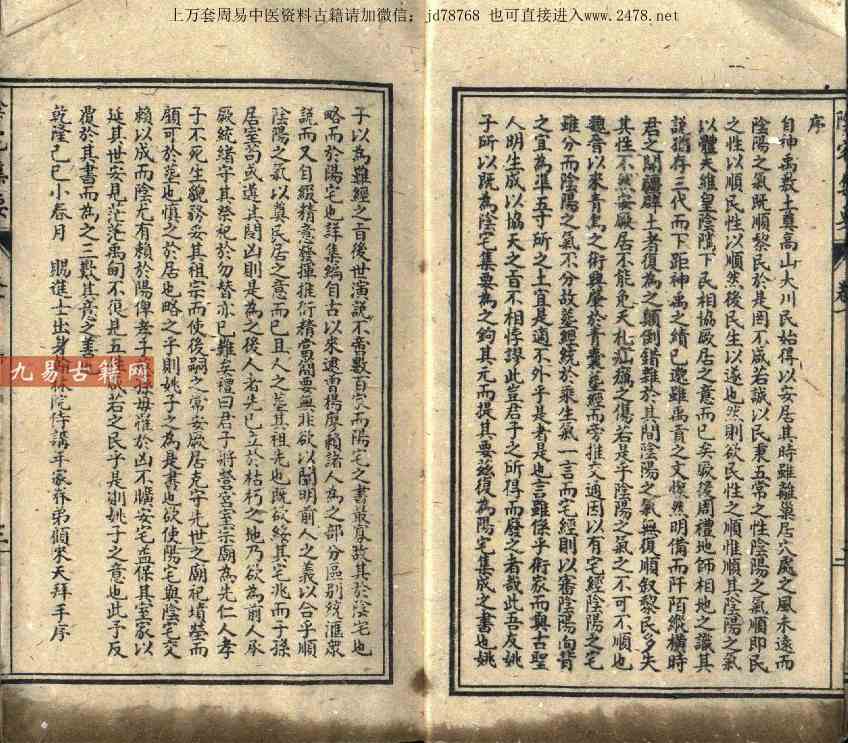 上万套周易中医资料古籍请加微信：jd78768 也可直接进入www.2478.net
序
自神禹敷土奠高山大川民始得以安居其時雖離巢居穴處之風未遠而
陰陽之氣既順黎民於是罔不咸若誠以民秉五常之性陰陽之氣順即民
之性以順民性以順然後民生以遂也然則欲民性之順惟順其陰陽之氣
以體天維皇陰隲下民相協厥居之意而已矣厥後周禮地師相地之識其
說猶存三代而下距神禹之績已遠雖禹貢之文燦然明備而阡陌縱橫時
君之開疆辟土者復為之顛倒錯雜於其間陰陽之氣無復順叙黎民多失
其性不然安厥居不能免夭札疵癘之傷若是乎陰陽之氣之不可不順也
魏晉以來青烏之術興肇於青囊葬經而旁推交通因以有宅經陰陽之宅
雖分而陰陽之氣不分故葬經統於乘生氣一言而宅經則以審陰陽向背
之宜為準五寸所之土宜是適不外乎是者是也言雖係乎術家而與古聖
人明生成以協天之旨不相悖謬此豈君子之所得而廢之者哉此吾友姚
子所以既為陰宅集要為之鉤其元而提其要玆復為陽宅集成之書也姚
子以為雖經之旨後世演說不啻數百家而陽宅之書最寡故其於陰宅也
略而於陽宅也詳集編自古以來逮雷楊廖賴諸人為之部分區別統滙眾
說而又自綴精意發揮推衍精當簡要無非欲以闡明前人之義以合乎順
陰陽之氣以奠民居之意而已且人之葬其祖先也既欲綏其宅兆而于孫
居室苟或遘其閔凶則是為之後人者先已立於枯朽之地乃欲為前人承
厥統緒守其祭祀於勿替亦已難矣禮曰君子將營宮室宗廟為先仁人孝
子不死生貌務妥其祖宗而使後嗣之常安厥居克守先世之廟祀墳塋而
顧可於葬也慎之於居也略之乎則姚子之為是書也欲使陽宅與陰宅交
賴以成而陰尤有賴於陽俾孝子
毋罹於凶不曠安宅益保其室家以
延其世安見茫茫禹甸不復見五
咸若之民乎是則姚子之意也此予反
覆於其書而為之三歎其意之善
乾隆己巳小春月 賜進士出身翰林院侍講年家眷弟顧宋天拜手序
九易古籍网